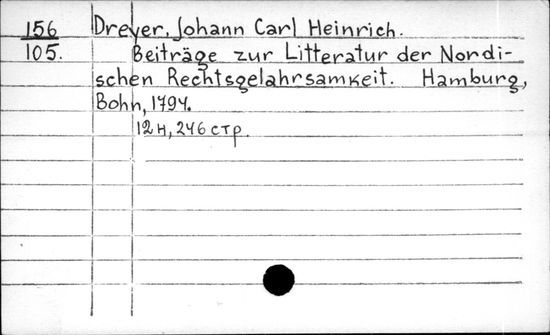 156 Dreyer, Johann Carl Heinrich.
105. Beiträge zur Litteratur der Nordi-
schen Rechtsgelahrsamkeit. Hamburg,
Bohn, 1794.
12 н, 246 стр.